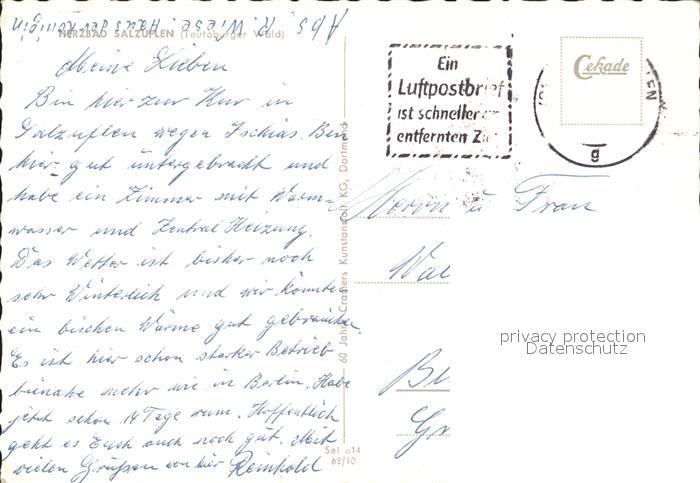 Abs. R. Wiese. Haus der Königin
HERZBAD SALZUFLEN (Teutoburger Wald)
Meine Lieben
Bin hier zur Kur in
Salzuflen wegen Ischias. Bin
hier gut untergebracht und
habe ein Zimmer mit Warm-
wasser und Zentral Heizung.
Das Wetter ist bisher noch
sehr Winterlich und wir könnten
ein bischen Wärme gut gebrauchen.
Es ist hier schon starker Betrieb
beinahe mehr wie in Berlin. Habe
jetzt schon 14 Tage rum. Hoffentlich
geht es Euch auch noch gut. Mit
vielen Grüßen von hier Reinhold
60 Jahre Cramers Kunstanstalt KG, Dortmund
Sal a14
62/10
Ein
Luftpostbrief
ist schneller
entfernten
g
LEN
Cekade
Herrn u Frau
privacy protection
Datenschutz